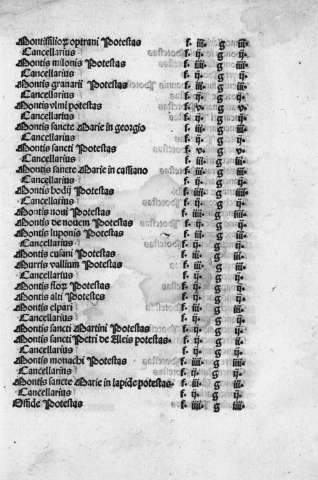 Montisfilioꝝ optrani Potestas f. iii. g iiii.
Cancellarius f. ii. g ii.
Montis milonis Potestas f. iiii. g iiii.
Cancellarius f. ii. g ii.
Montis granarii Potestas f. iiii. g iiii.
Cancellarius f. ii. g ii.
Montis vlmi potestas f. v. g v.
Cancellarius f. ii. g ii.
Montis sancte Marie in georgio f. iii. g iii.
Cancellarius f. ii. g ii.
Montis sancti Potestas f. v. g v.
Cancellarius f. ii. g ii.
Montis sancte Marie in cassiano f. iii. g iii.
Cancellarius f. ii. g ii.
Montis bodij Potestas f. iiii. g iiii.
Cancellarius f. ii. g ii.
Montis noui Potestas f. iii. g iiii.
Montis de nouem Potestas f. ii. g ii.
Montis luponis Potestas f. iii. g iii.
Cancellarius f. ii. g ii.
Montis cusani Potestas f. iii. g iii.
Murris vallium Potestas f. iii. g iii.
Cancellarius f. ii. g ii.
Montis floꝝ Potestas f. ii. g ii.
Montis alti Potestes f. ii. g ii.
Montis elpari f. iii. g iii.
Cancellarius f. ii. g ii.
Montis sancti Martini Potestas f. ii. g ii.
Montis sancti Petri de Alleis potestas f. iii. g iii.
Cancellarius f. ii. g ii.
Montis monachi Potestas f. iiii. g iiii.
Cancellarius f. ii. g ii.
Montis sancte Marie in lapide potestas f. iii. g iiii.
Cancellarius f. ii. g ii.
Offide Potestas f. iiii. g iiii.